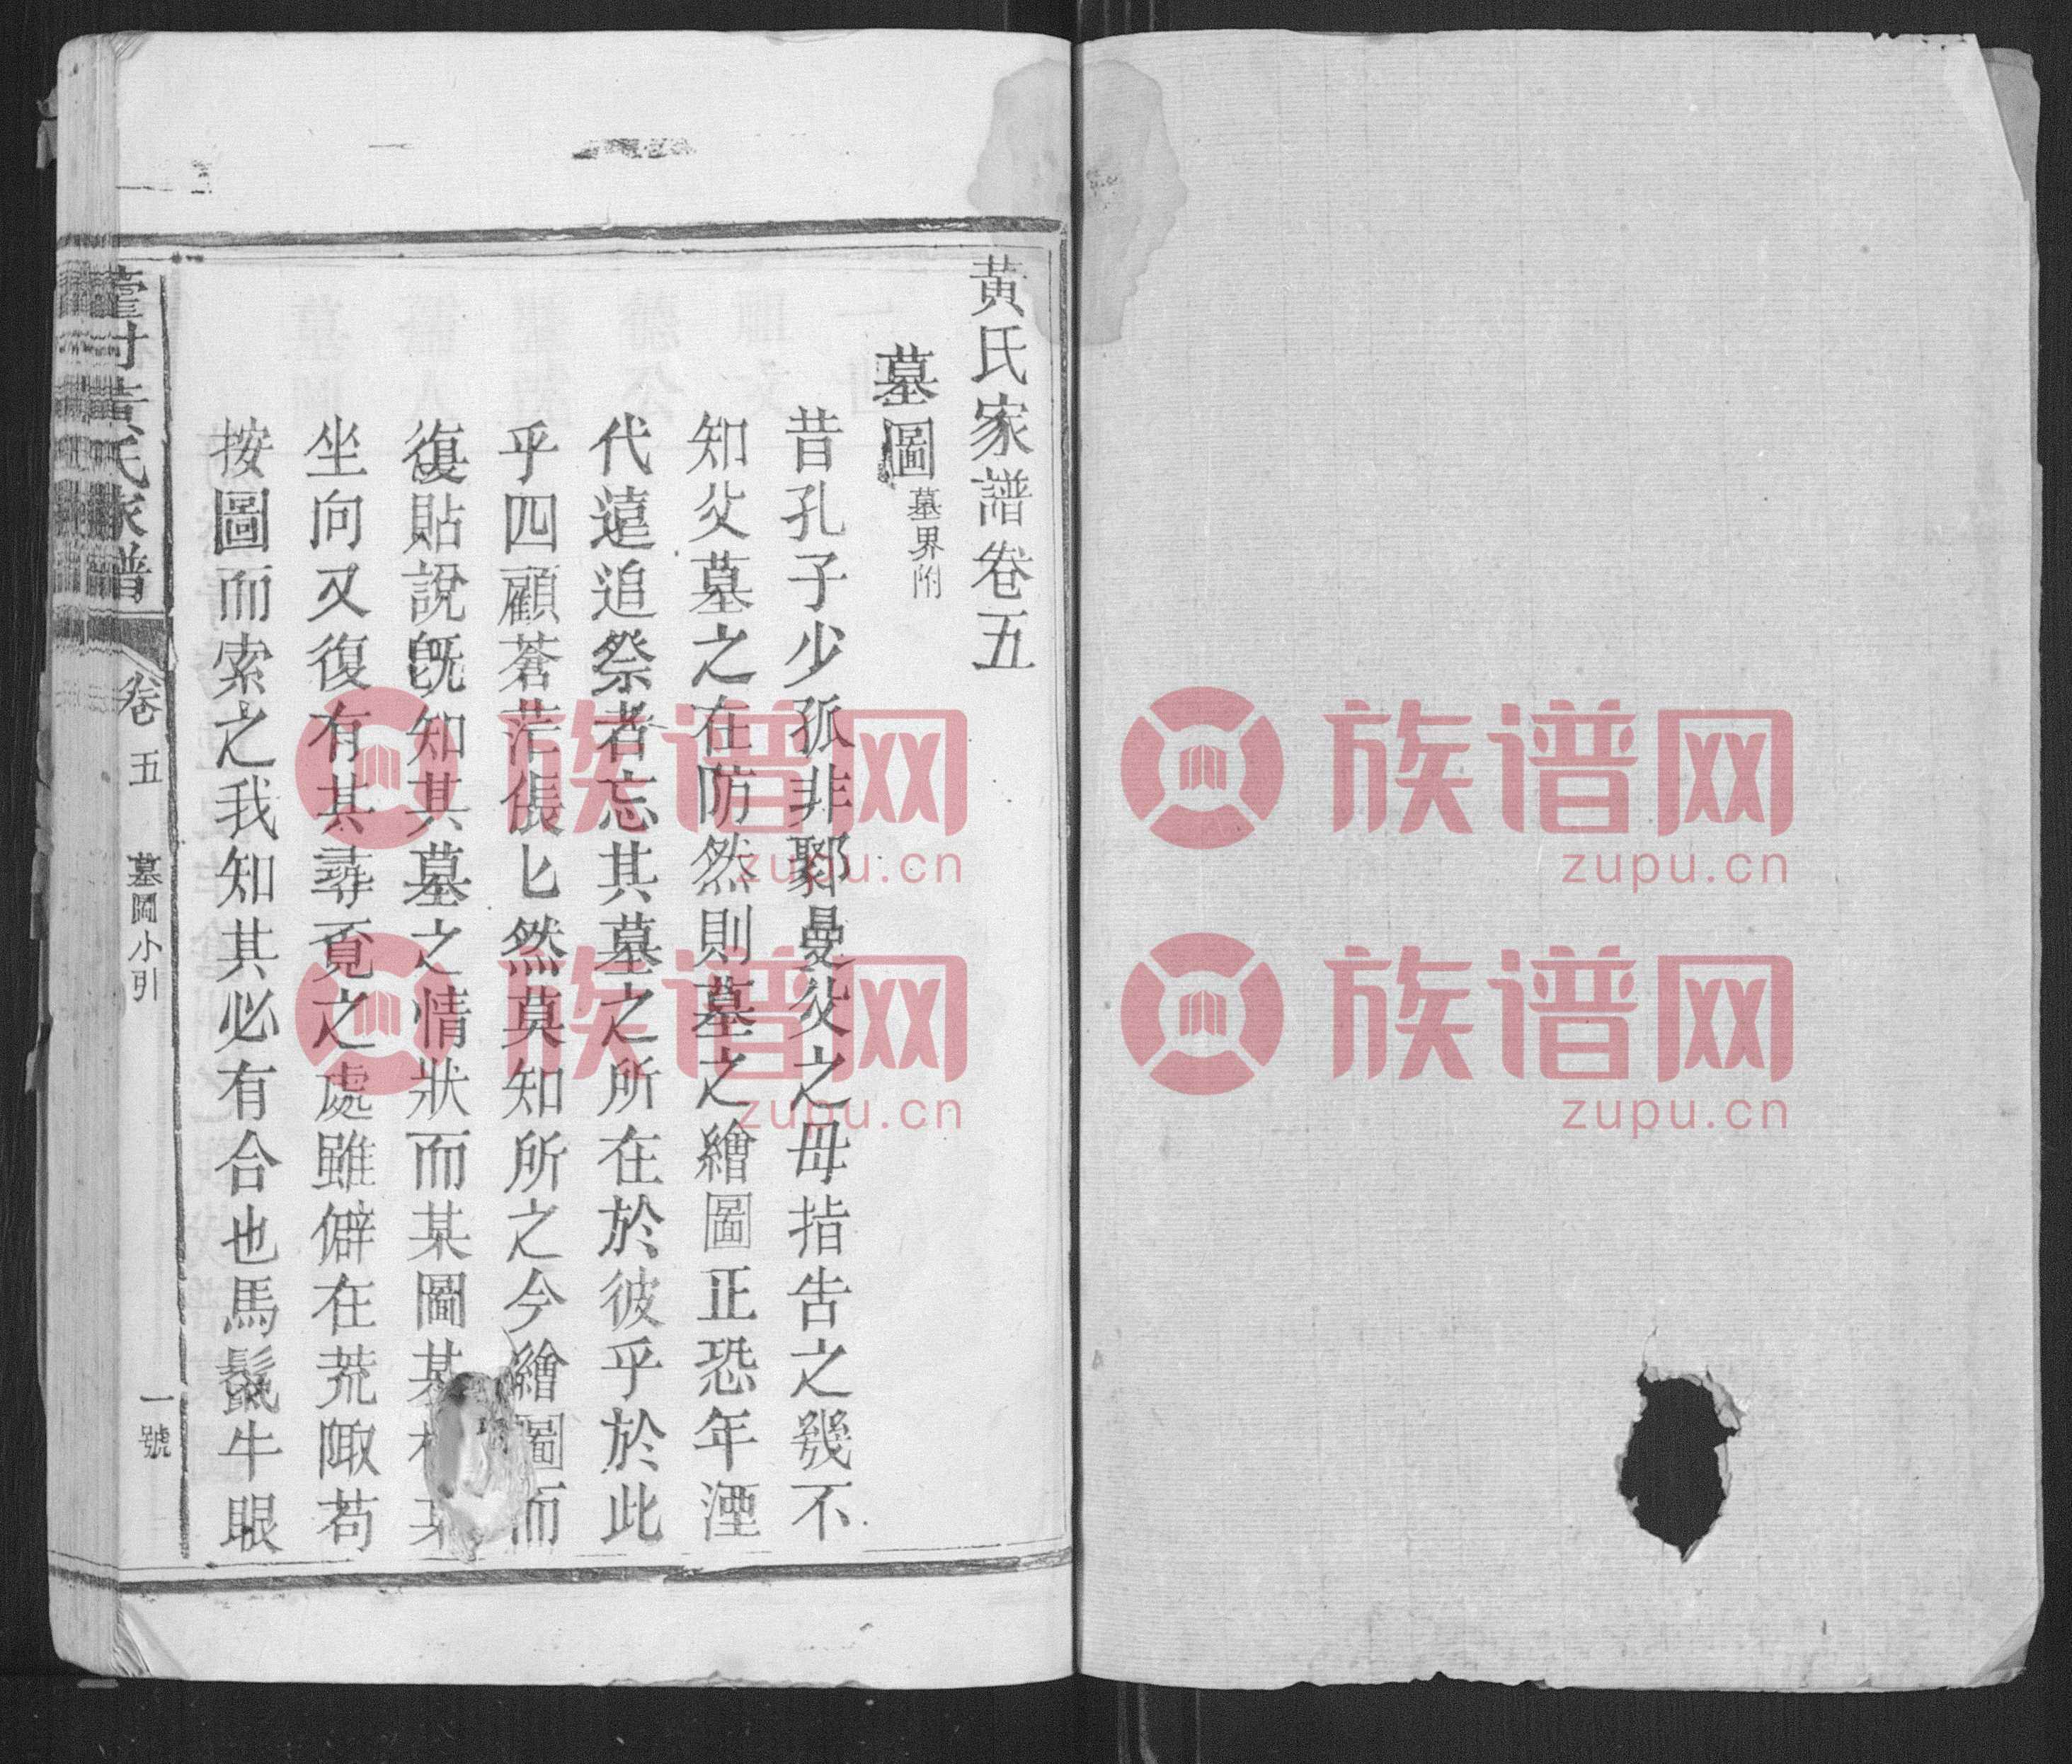 黃氏家譜卷五
墓圖 墓界附
昔孔子少孤非郰曼父之母指告之幾不
知父墓之在防然則墓之繪圖正恐年湮
代遠追祭者忘其墓之所在於彼乎於此
乎四顧蒼茫倀匕然莫知所之今繪圖而
復貼說旣知其墓之情狀而某圖某
坐向又復有其尋覓之處雖僻在荒陬苟
按圖而索之我知其必有合也馬鬛牛眼
黃氏家譜
卷五
墓圖小引
一號
族谱网
zupu.cn
族谱网
zupu.cn
族谱网
zupu.cn
族谱网
zupu.cn